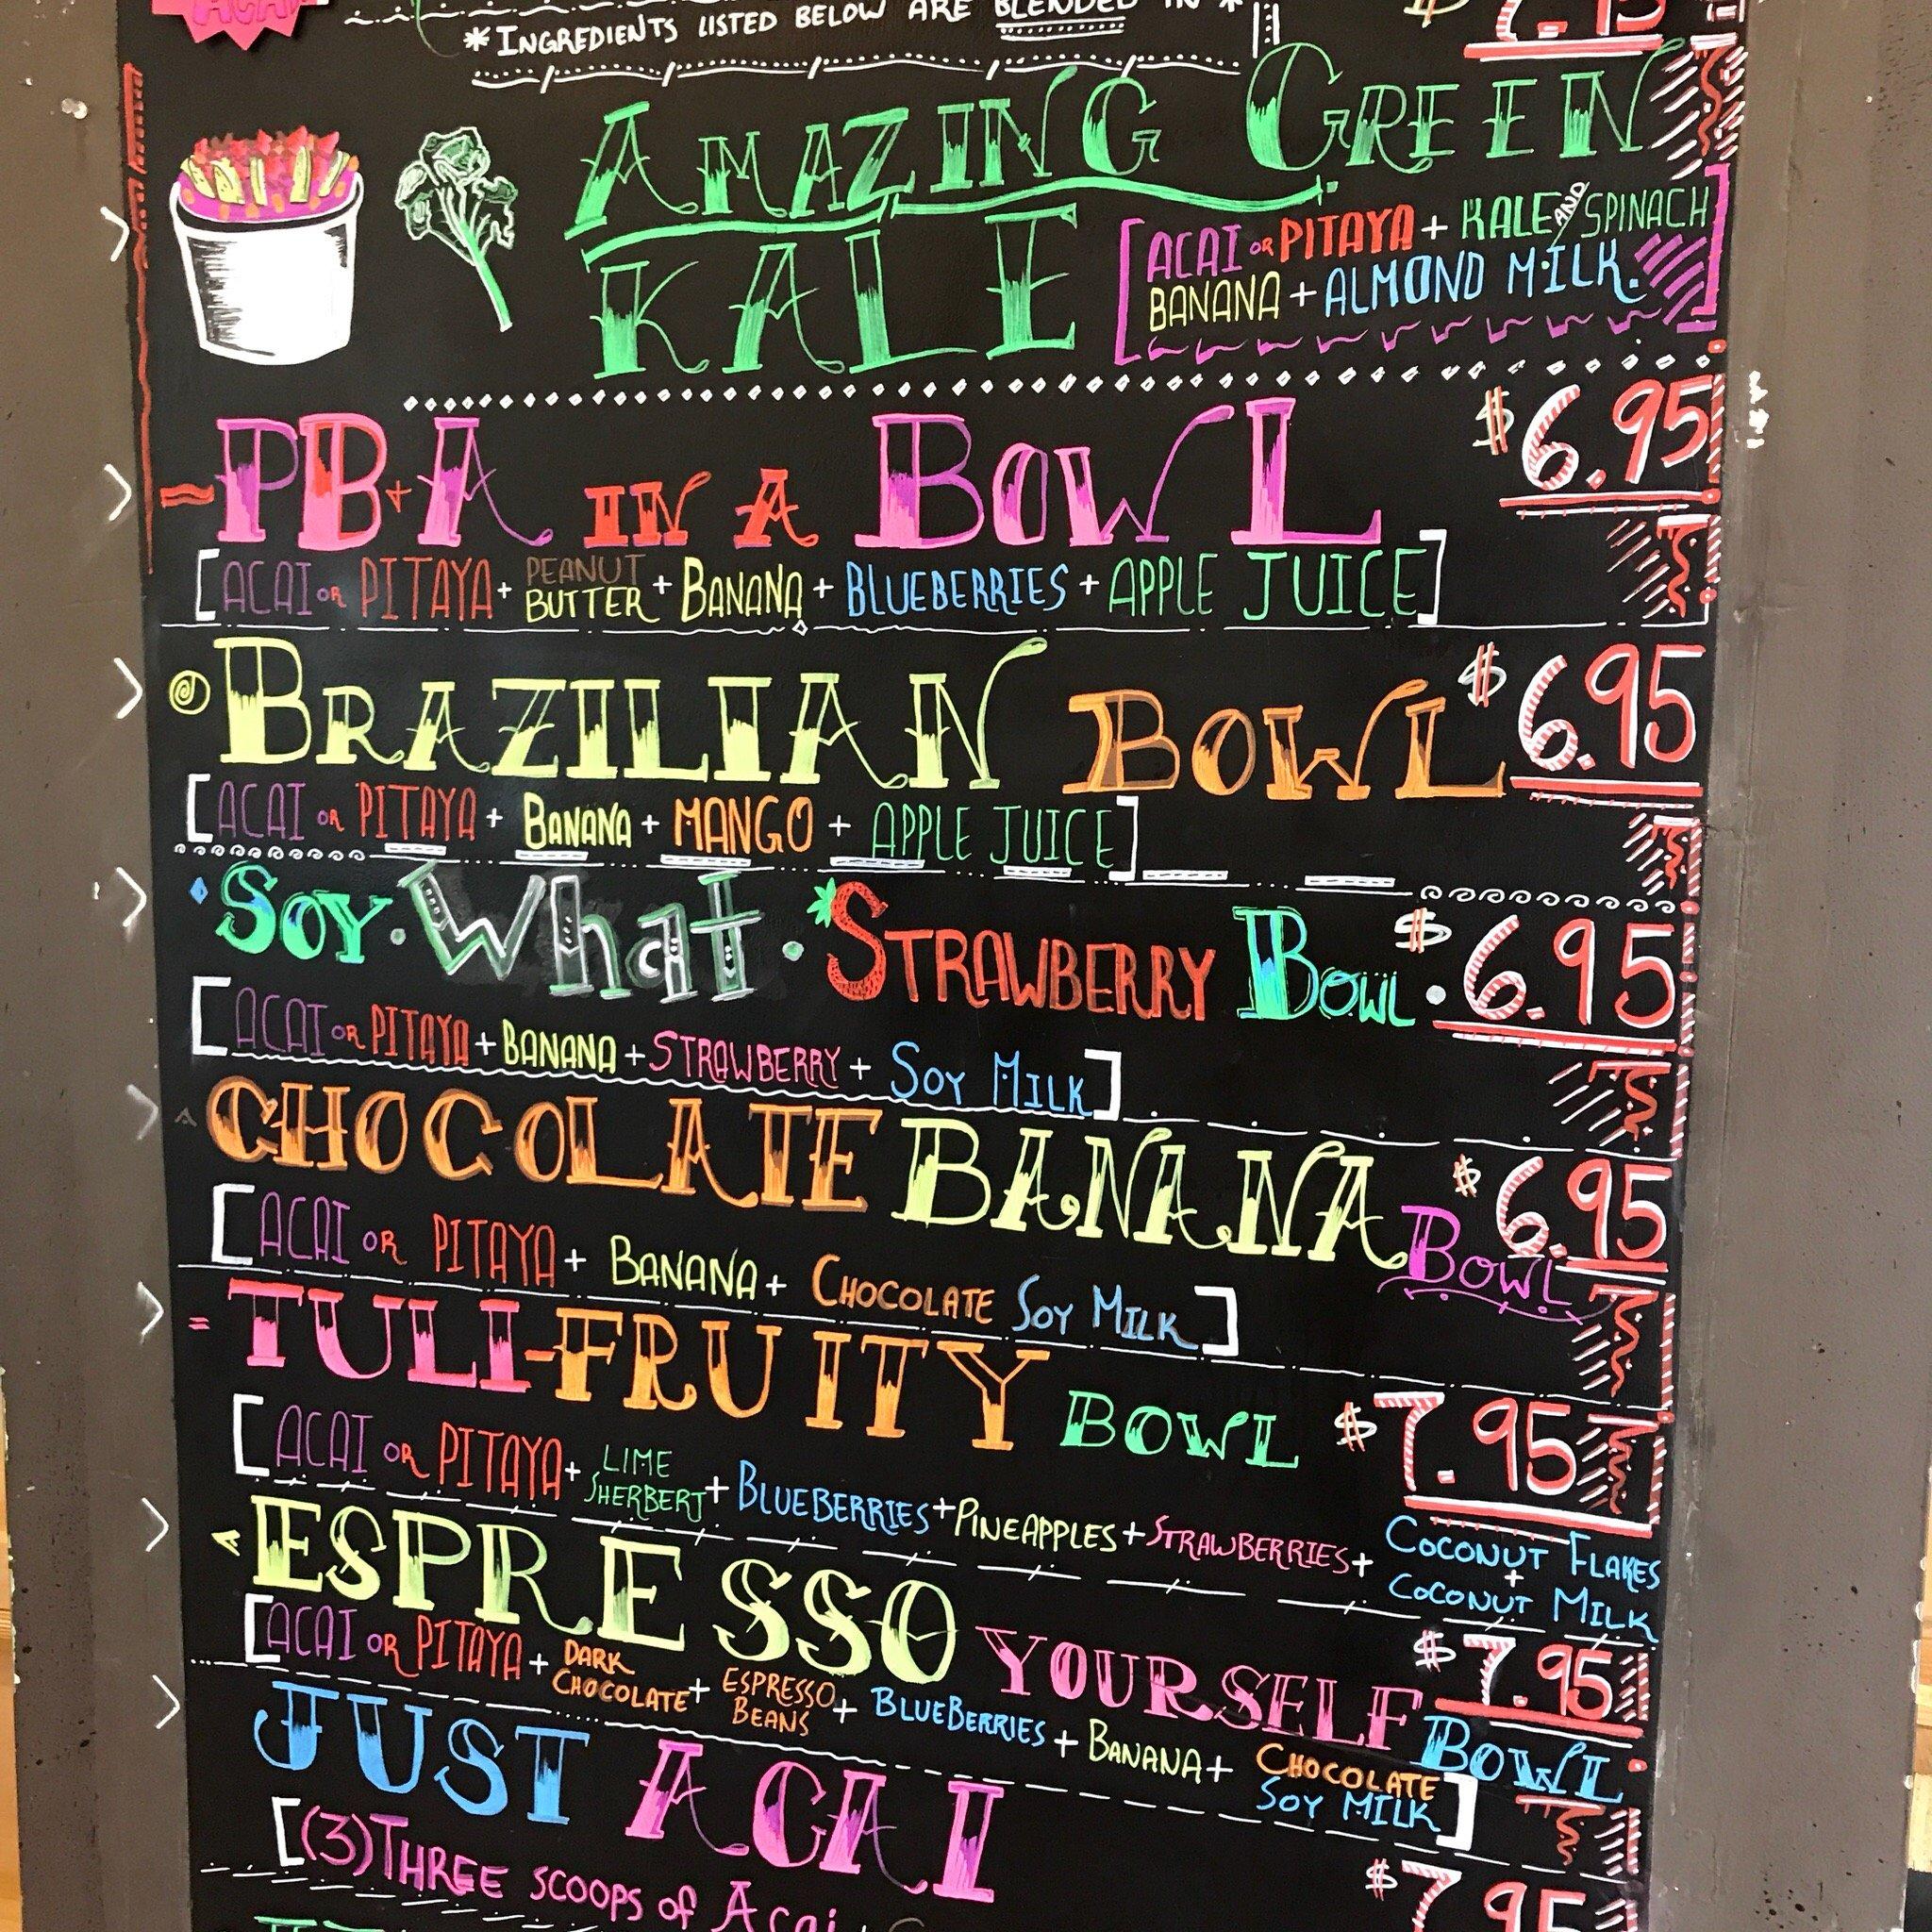 ACAI
*INGREDIENTS LISTED BELOW ARE BLENDED IN*
$7.95
AMAZING GREEN
KALE
[ACAI OR PITAYA + KALE AND SPINACH
BANANA + ALMOND MILK.]
PB+A IN A BOWL $6.95
[ACAI OR PITAYA + PEANUT BUTTER + BANANA + BLUEBERRIES + APPLE JUICE]
BRAZILIAN BOWL $6.95
[ACAI OR PITAYA + BANANA + MANGO + APPLE JUICE]
SOY·What·*STRAWBERRY BOWL·$6.95
[ACAI OR PITAYA + BANANA + STRAWBERRY + SOY MILK]
CHOCOLATE BANANA BOWL $6.95
[ACAI OR PITAYA + BANANA + CHOCOLATE SOY MILK]
=TULI-FRUITY BOWL $7.95
[ACAI OR PITAYA + LIME SHERBERT + BLUEBERRIES + PINEAPPLES + STRAWBERRIES + COCONUT FLAKES + COCONUT MILK
ESPRESSO YOURSELF BOWL $7.95
[ACAI OR PITAYA + DARK CHOCOLATE + ESPRESSO BEANS + BLUEBERRIES + BANANA + CHOCOLATE SOY MILK]
JUST ACAI $7.95
[(3) THREE SCOOPS OF Acai